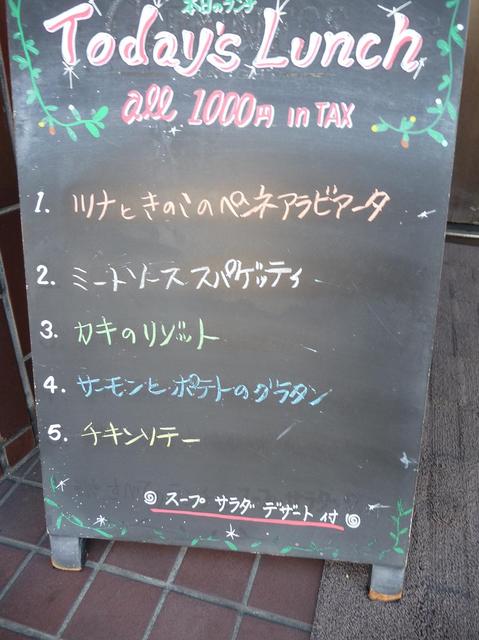 本日のランチ
Today's Lunch
all 1000円 in TAX
1. ツナときのこのペンネアラビアータ
2. ミートソース スパゲッティ
3. カキのリゾット
4. サーモンとポテトのグラタン
5. チキンソテー
スープ サラダ デザート付